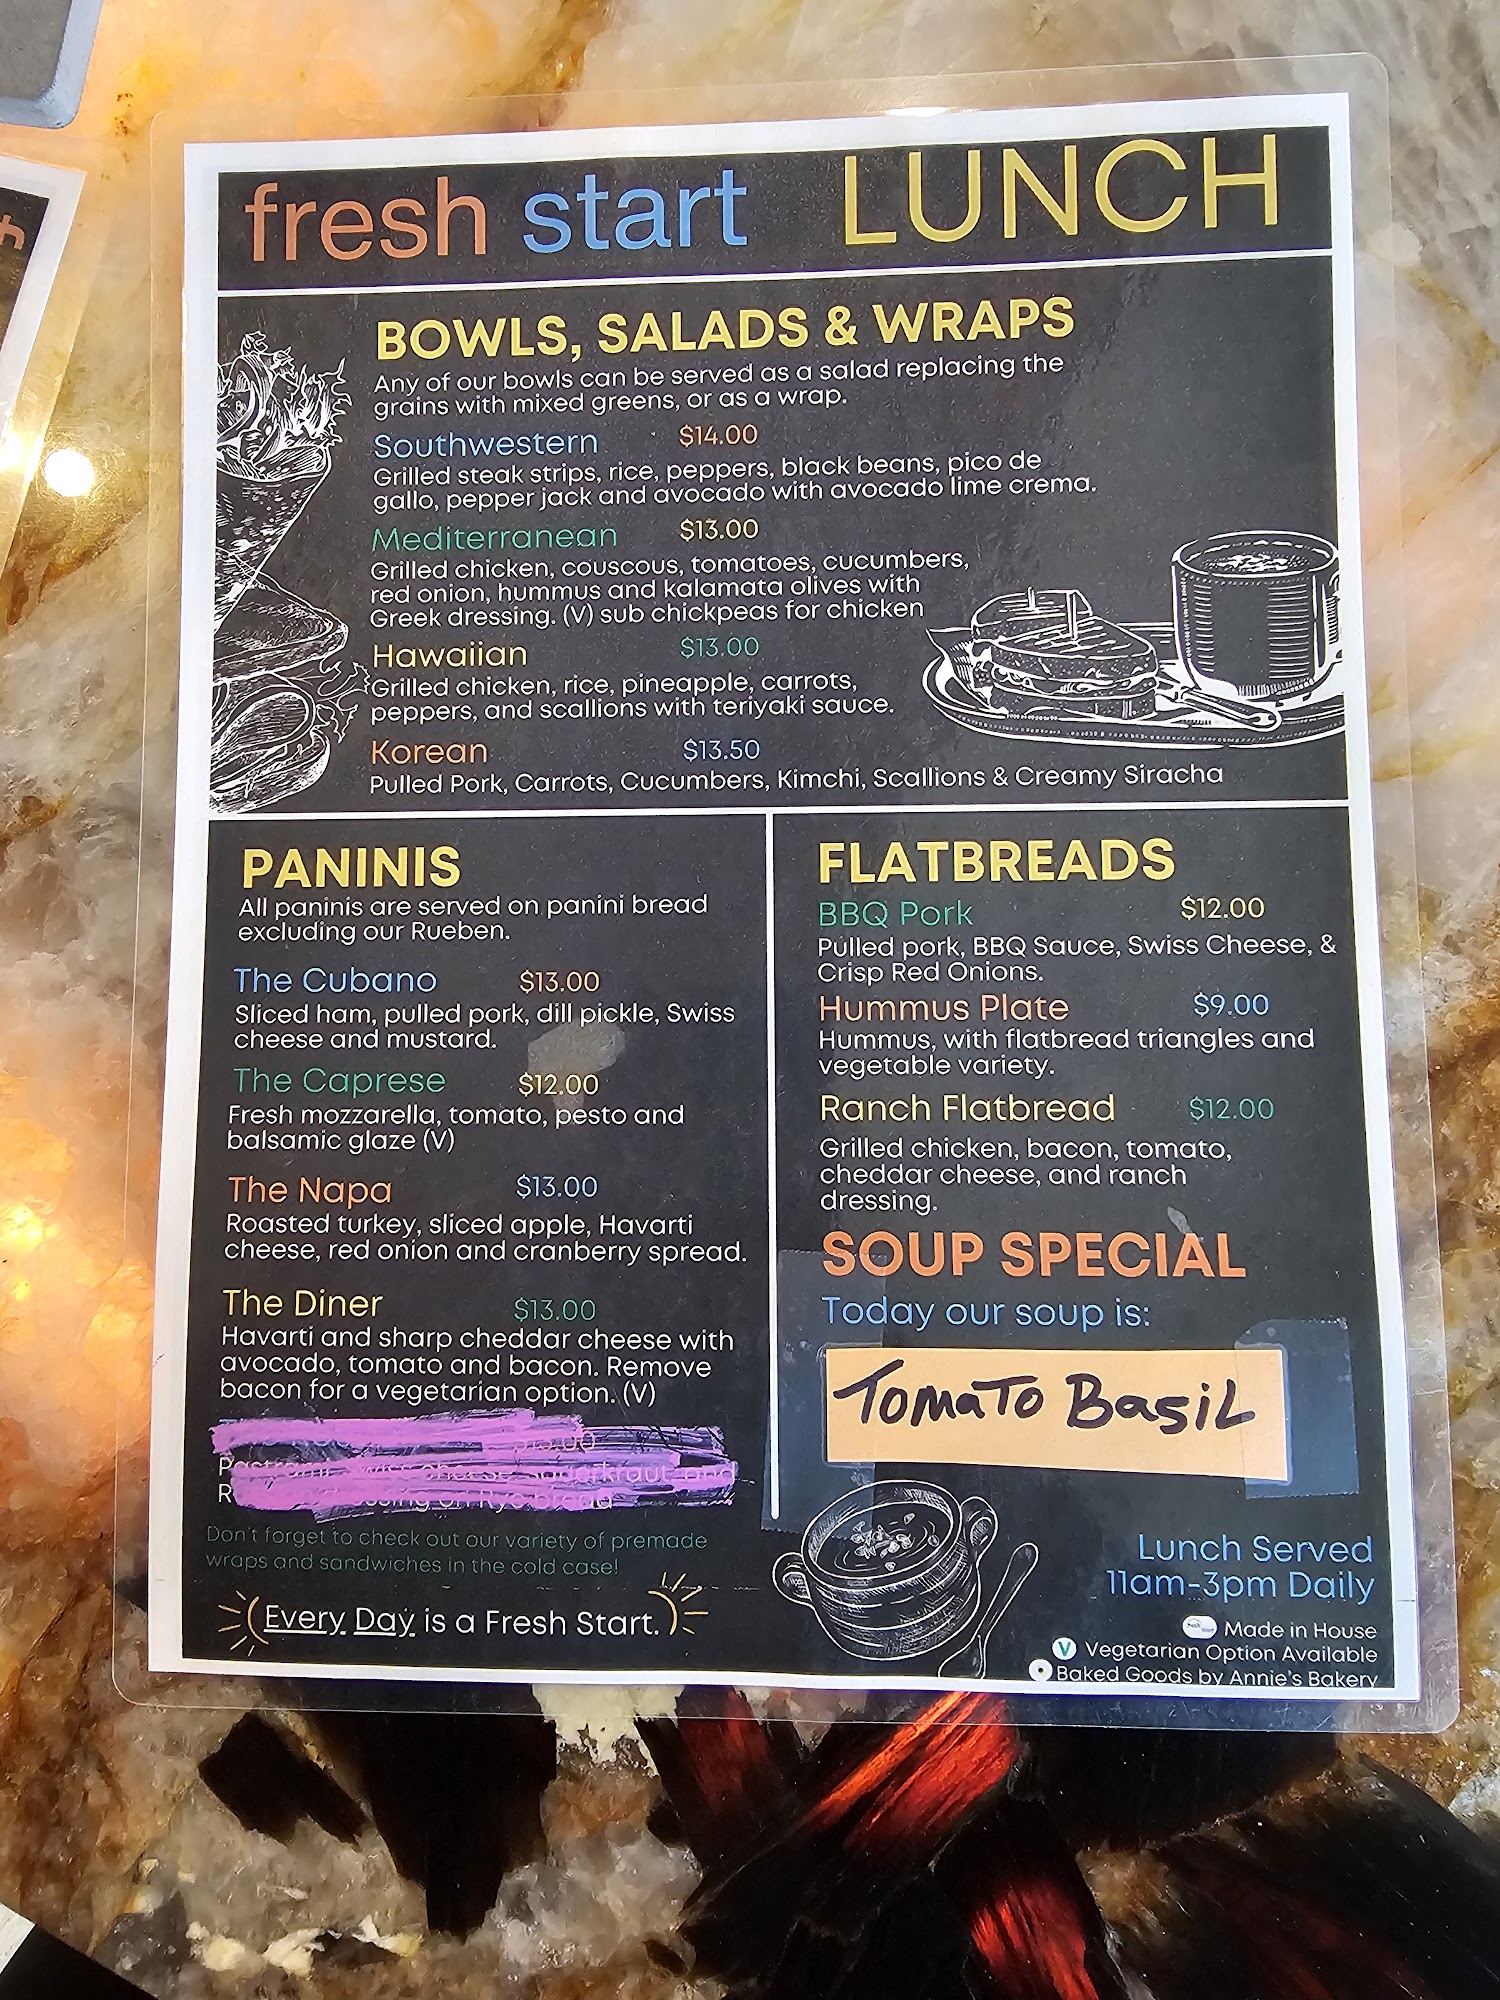 fresh start LUNCH
BOWLS, SALADS & WRAPS
Any of our bowls can be served as a salad replacing the
grains with mixed greens, or as a wrap.
Southwestern $14.00
Grilled steak strips, rice, peppers, black beans, pico de
gallo, pepper jack and avocado with avocado lime crema.
Mediterranean $13.00
Grilled chicken, couscous, tomatoes, cucumbers,
red onion, hummus and kalamata olives with
Greek dressing. (V) sub chickpeas for chicken
Hawaiian $13.00
Grilled chicken, rice, pineapple, carrots,
peppers, and scallions with teriyaki sauce.
Korean $13.50
Pulled Pork, Carrots, Cucumbers, Kimchi, Scallions & Creamy Siracha
PANINIS
All paninis are served on panini bread
excluding our Rueben.
The Cubano $13.00
Sliced ham, pulled pork, dill pickle, Swiss
cheese and mustard.
The Caprese $12.00
Fresh mozzarella, tomato, pesto and
balsamic glaze (V)
The Napa $13.00
Roasted turkey, sliced apple, Havarti
cheese, red onion and cranberry spread.
The Diner $13.00
Havarti and sharp cheddar cheese with
avocado, tomato and bacon. Remove
bacon for a vegetarian option. (V)
Pastrami, Swiss cheese, sauerkraut, and
on Rye bread
Don't forget to check out our variety of premade
wraps and sandwiches in the cold case!
Every Day is a Fresh Start.
FLATBREADS
BBQ Pork $12.00
Pulled pork, BBQ Sauce, Swiss Cheese, &
Crisp Red Onions.
Hummus Plate $9.00
Hummus, with flatbread triangles and
vegetable variety.
Ranch Flatbread $12.00
Grilled chicken, bacon, tomato,
cheddar cheese, and ranch
dressing.
SOUP SPECIAL
Today our soup is:
Tomato Basil
Lunch Served
11am-3pm Daily
Made in House
V Vegetarian Option Available
Baked Goods by Annie's Bakery